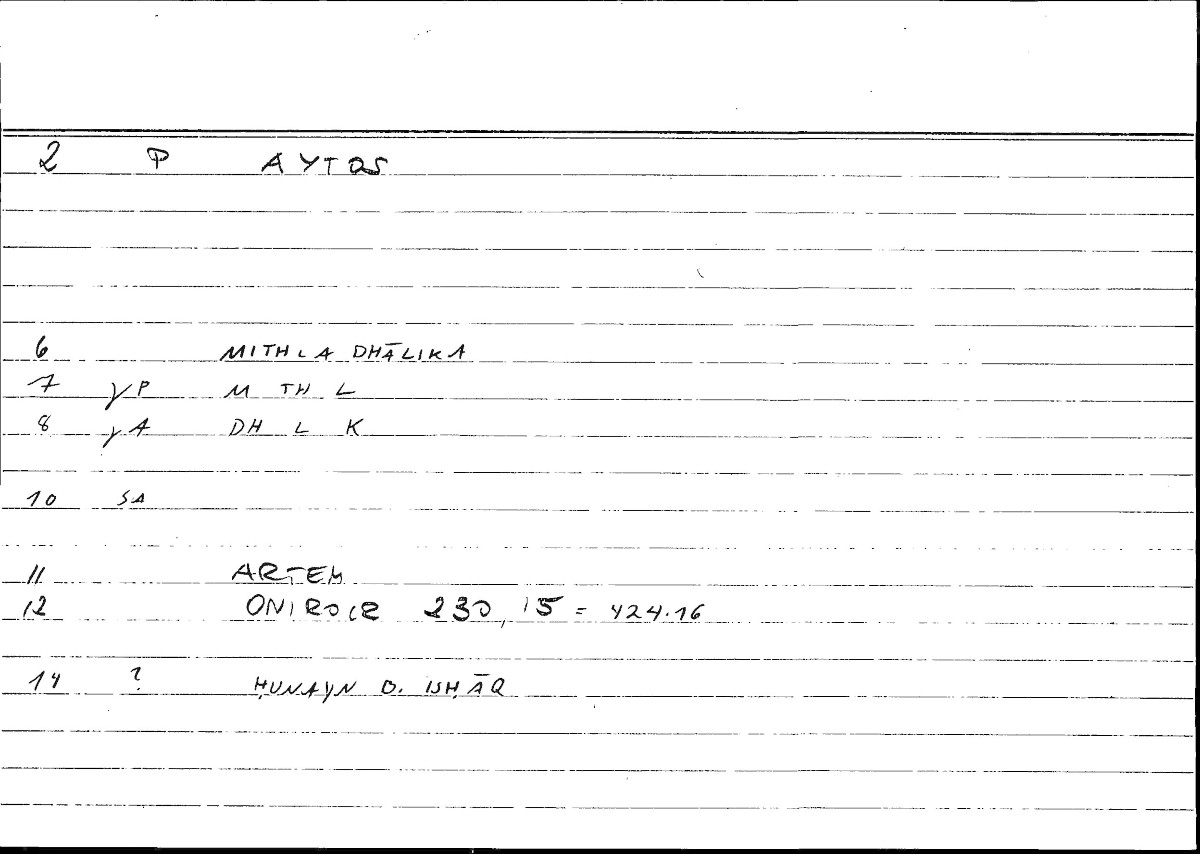 2 P AYTOS
6 MITHLA DHĀLIKA
7 γP M TH L
8 γA DH L K
10 SA
11 ARTEM
12 ONIROCR 230, 15 = 424.16
14 ? ḤUNAYN B. ISḤĀQ